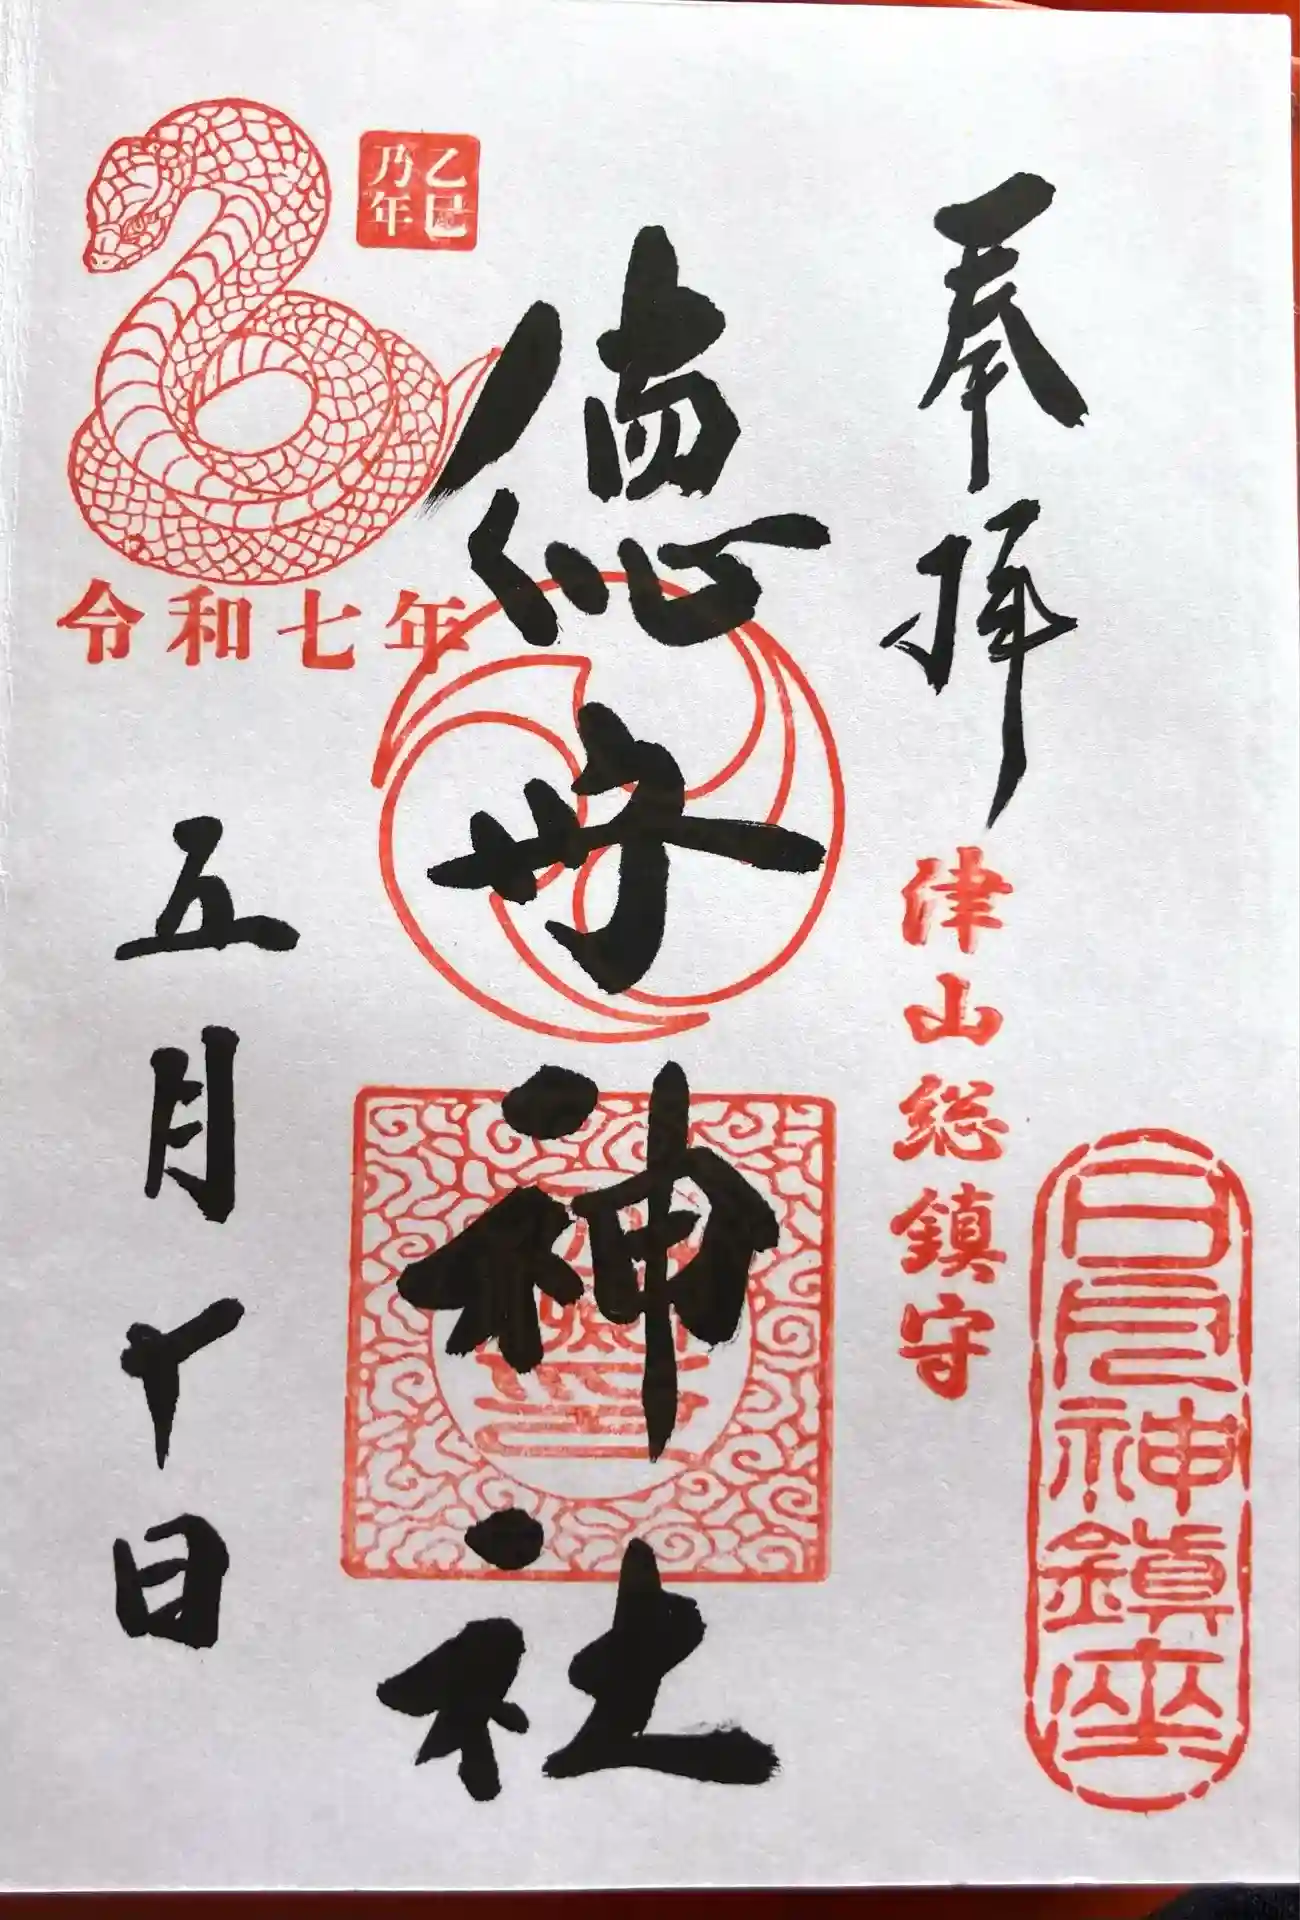 奉拝
津山総鎮守
日月神鎮座
徳守神社
乙巳
乃年
令和七年
五月十日